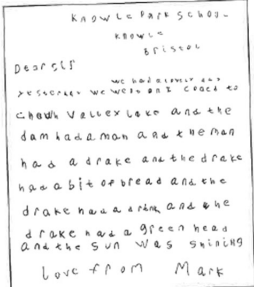 Knowle Park School
Knowle
Bristol
Dear Sir
we had a lovely day
yesterday we went on a coach to
Chowh Valley Lake and the
dam had a man and the man
had a drake and the drake
had a bit of bread and the
drake had a drink and the
drake had a green head
and the sun was shining
love from Mark